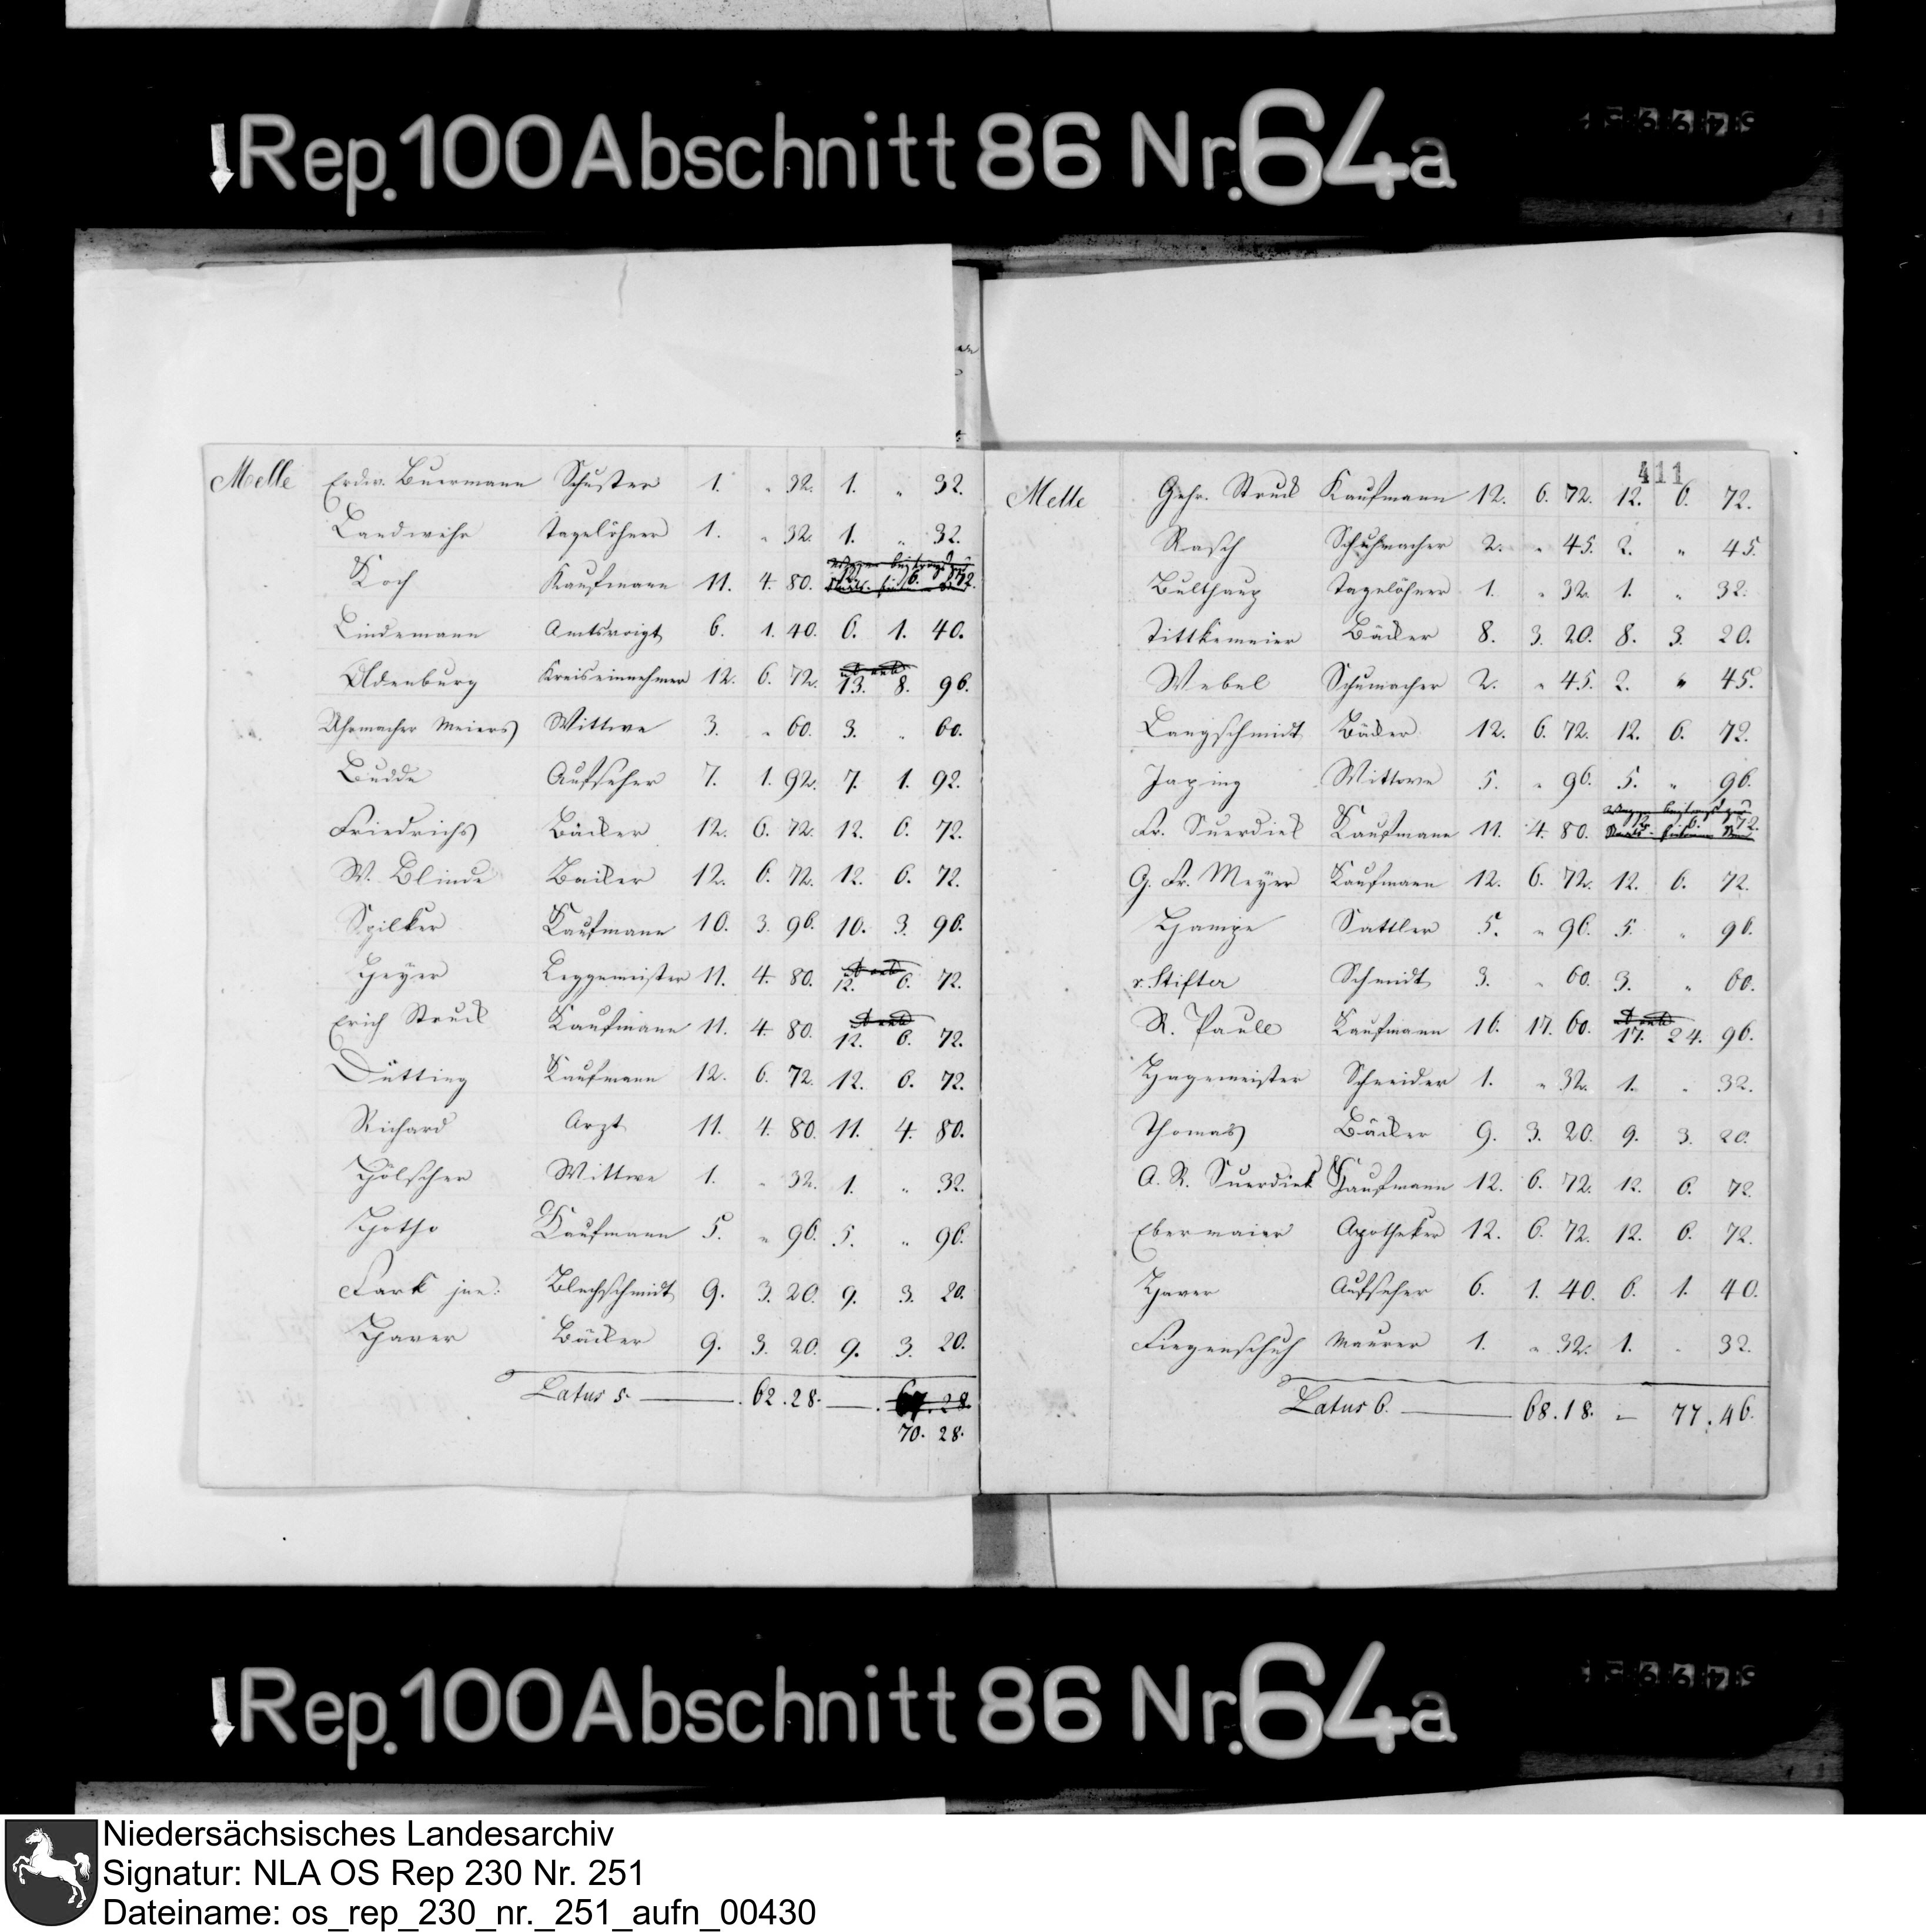 Rep. 100 Abschnitt 86 Nr. 64a
Melle Erdw. Buermann Schuster 1. " 32. 1. " 32.
Landwehr Tagelöhner 1. " 32. 1. " 32.
Koch Kaufmann 11. 4. 80. 12. 6. 72.
Lindemann Amtsvoigt 6. 1. 40. 6. 1. 40.
Oldenburg Kreiseinnehmer 12. 6. 72. 13. 8. 96.
Uhrmacher Meiers Wittwe 3. " 60. 3. " 60.
Budde Aufseher 7. 1. 92. 7. 1. 92.
Friedrichs Bäcker 12. 6. 72. 12. 6. 72.
W. Blinde Bäcker 12. 6. 72. 12. 6. 72.
Spilker Kaufmann 10. 3. 96. 10. 3. 96.
Heyer Leggemeister 11. 4. 80. 12. 6. 72.
Erich Struck Kaufmann 11. 4. 80. 12. 6. 72.
Dütting Kaufmann 12. 6. 72. 12. 6. 72.
Richard Arzt 11. 4. 80. 11. 4. 80.
Hölscher Wittwe 1. " 32. 1. " 32.
Hotho Kaufmann 5. " 96. 5. " 96.
Fark jun: Blechschmidt 9. 3. 20. 9. 3. 20.
Haver Bäcker 9. 3. 20. 9. 3. 20.
Latus 5. 62. 28. 67. 28.
70. 28.
411
Melle Gehr. Struck Kaufmann 12. 6. 72. 12. 6. 72.
Rasch Schuhmacher 2. " 45. 2. " 45.
Bulthaup Tagelöhner 1. " 32. 1. " 32.
Tittkemeier Bäcker 8. 3. 20. 8. 3. 20.
Webel Schumacher 2. " 45. 2. " 45.
Langschmidt Bäcker 12. 6. 72. 12. 6. 72.
Japing Wittwe 5. " 96. 5. " 96.
Fr. Suerdiek Kaufmann 11. 4. 80. 12. 6. 72.
G. Fr. Meyer Kaufmann 12. 6. 72. 12. 6. 72.
Hampe Sattler 5. " 96. 5. " 96.
v. Stifter Schmidt 3. " 60. 3. " 60.
R. Paull Kaufmann 16. 17. 60. 17. 24. 96.
Hagemeister Schneider 1. " 32. 1. " 32.
Thomas Bäcker 9. 3. 20. 9. 3. 20.
A. R. Suerdiek Kaufmann 12. 6. 72. 12. 6. 72.
Ebermaier Apotheker 12. 6. 72. 12. 6. 72.
Haver Aufseher 6. 1. 40. 6. 1. 40.
Fiegenschuh Maurer 1. " 32. 1. " 32.
Latus 6. 68. 18. 77. 46.
Rep. 100 Abschnitt 86 Nr. 64a
Niedersächsisches Landesarchiv
Signatur: NLA OS Rep 230 Nr. 251
Dateiname: os_rep_230_nr._251_aufn_00430